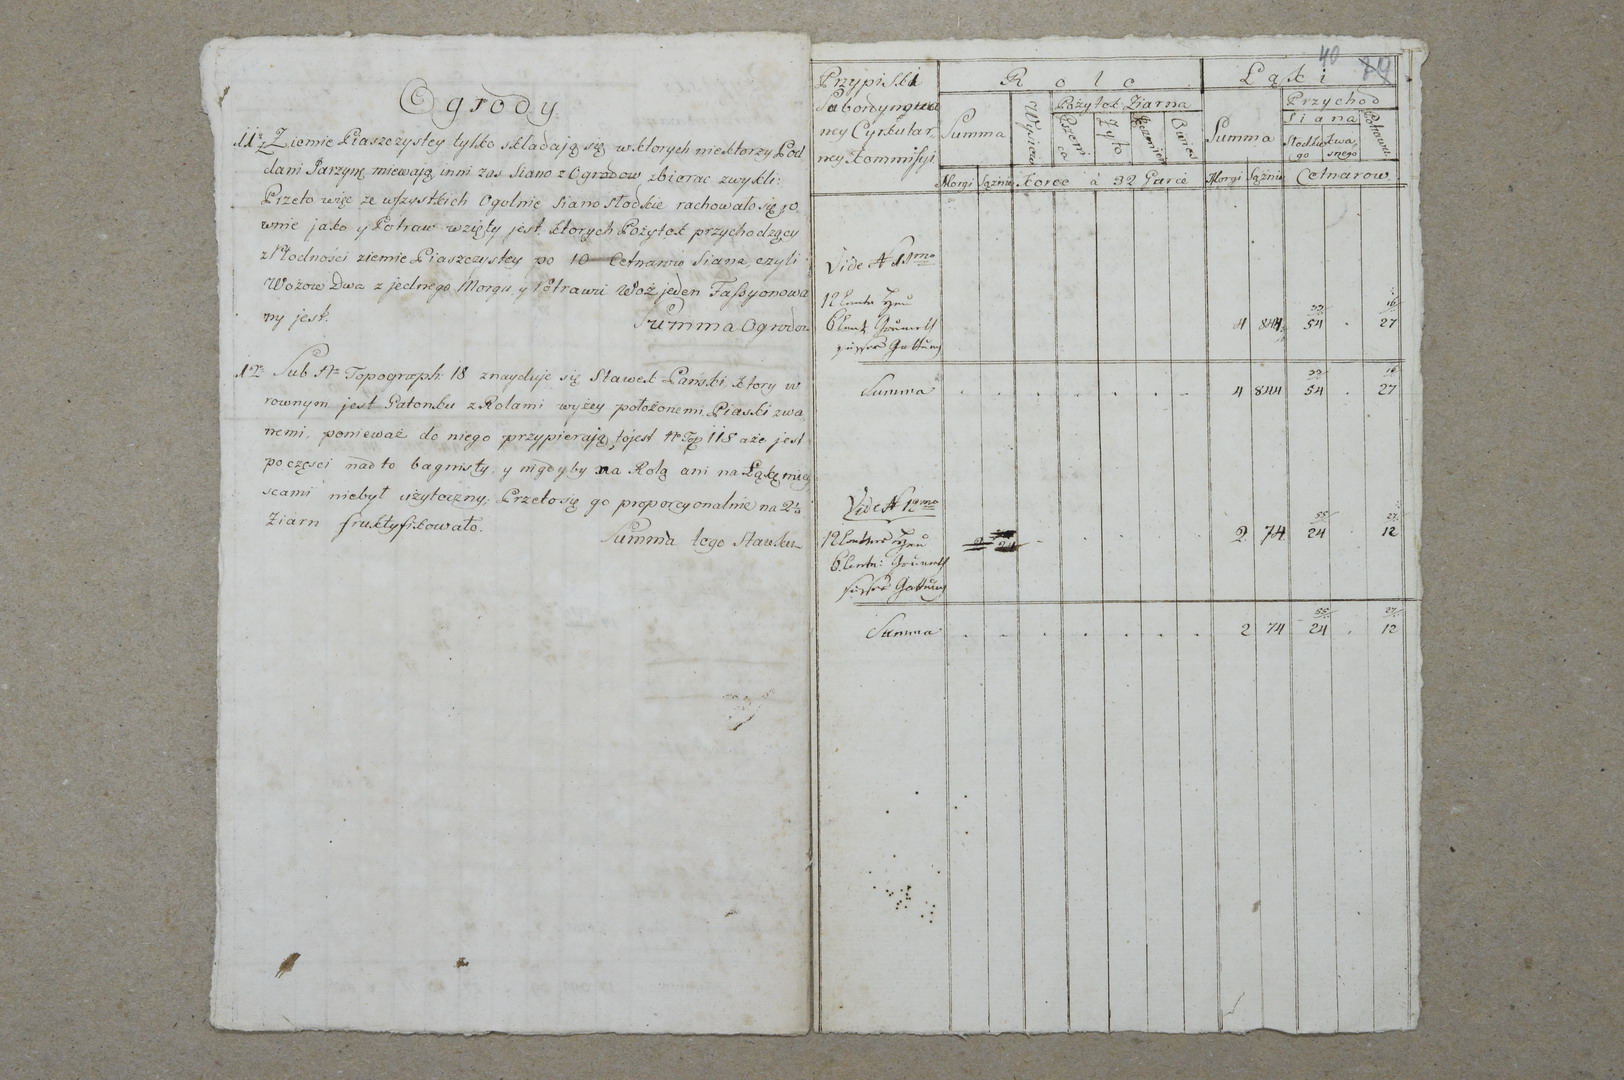 Ogrody.
11mo Ziemie Piaszczystey tylko składaią się w ktorych niektorzy Pod
dani Jarzynę miewaią, inni zas Siano z Ogrodow zbierac zwykli:
Przeto więc ze wszystkich Ogolnie Siano słodkie rachowało się, ro
wnie jako y Potraw wzięty jest, ktorych Pożytek przychodzący
z Płodności ziemie Piaszczystey po 10 Cetnarow Siana, czyli
Wozow Dwa z jednego Morgu, y Potrawu Woz jeden Fassyonowa
ny jest.
Summa Ogrodow
12mo Sub No Topograph: 18 znayduje się Stawek Pański, ktory w
rownym jest Gatonku z Rolami wyżey położonemi, Piaski zwa
nemi, ponieważ do niego przypieraią, to jest No Top 118 aże jest
poczęsci nadto bagnisty, y nigdyby na Rolą ani na Łąkę miey
scami niebył użyteczny; Przeto się go proporcyonalnie na 2
Ziarn fruktyfikowało.
Summa tego Stawku
40
Przypiski
Subordynowa
ney Cyrkular
ney Kommissyi
Role
Łąki
Summa
Wysiew
Pożytek Ziarna
Pszeni
ca
Żyto
Jęczmień
Owies
Summa
Przychod
Siana
Słodkie
go
Kwa
snego
Potrawu
Morgi Sążnie Korce à 32 Garce Morgi Sążnie Cetnarow
Vide No 11mo
12 Centn Heu
6 Cent Grumeth
süsser Gattung
4 844 54 . 27
Summa . . . . . . . . 4 844 54 . 27
Vide No 12mo
12 Centner Heu
6 Centn: Grumeth
süsser Gattung
2 74 24 12
Summa . . . . . . . . 2 74 24 . 12